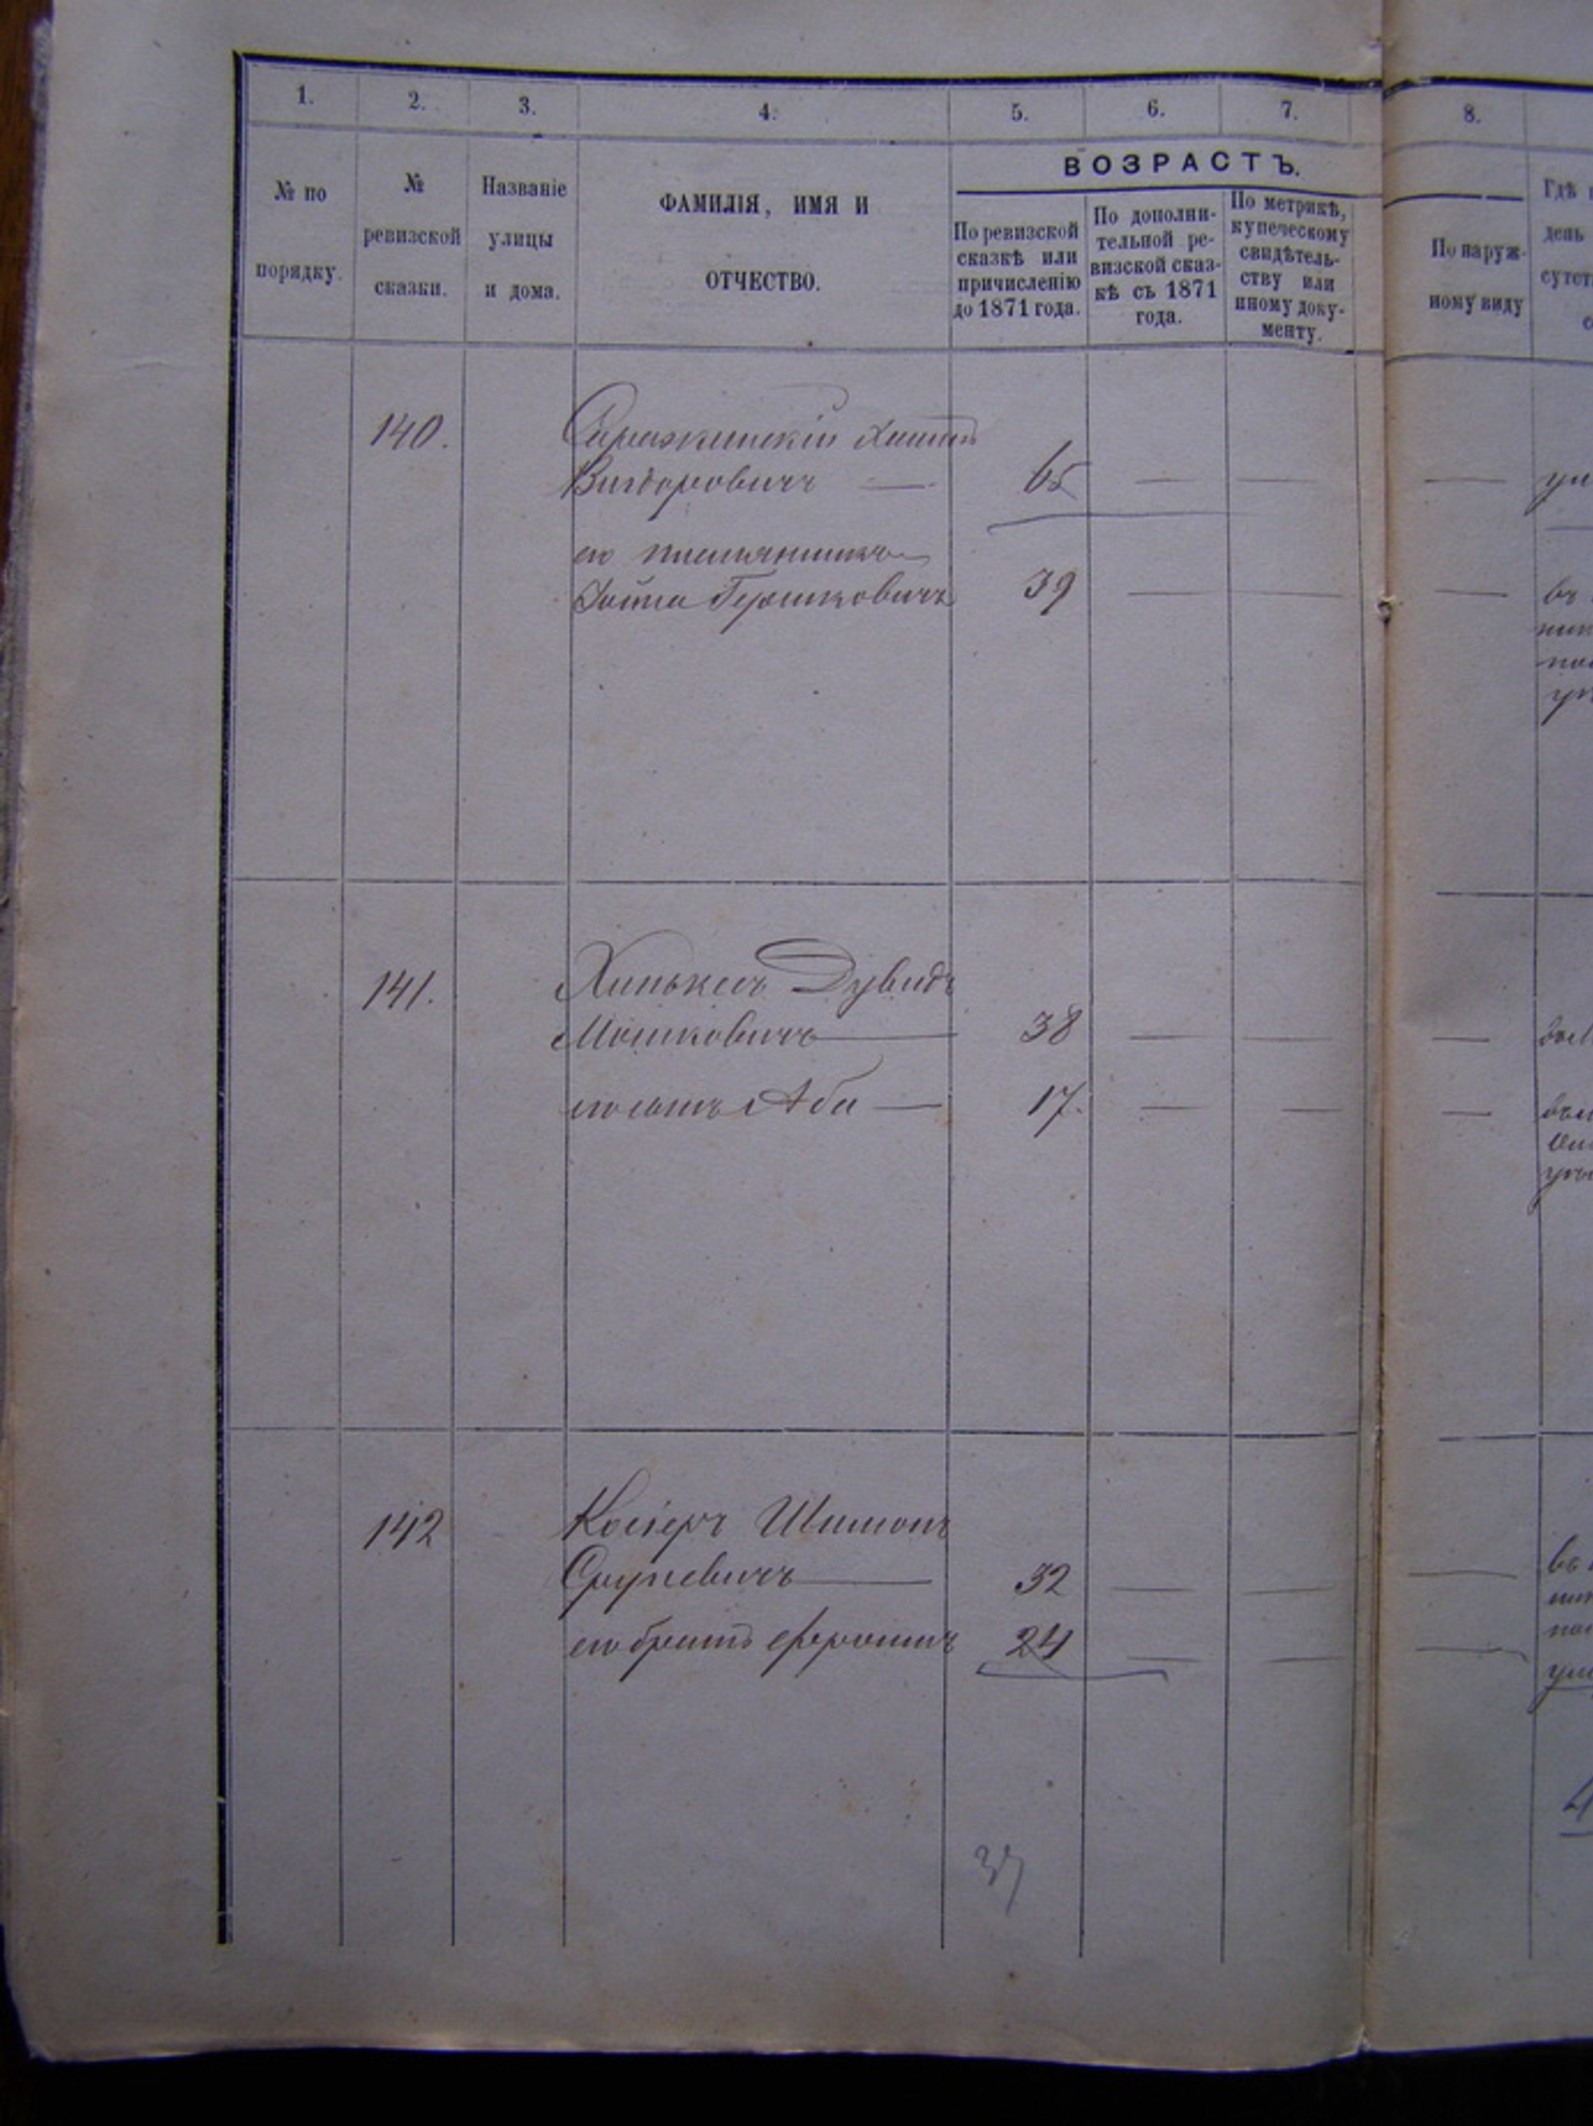 1. 2. 3. 4. 5. 6. 7. 8.
ВОЗРАСТЪ.
№ по
порядку.
№
ревизской
сказки.
Названіе
улицы
и дома.
ФАМИЛІЯ, ИМЯ И
ОТЧЕСТВО.
По ревизской
сказкѣ или
причисленію
до 1871 года.
По дополни-
тельной ре-
визской сказ-
кѣ съ 1871
года.
По метрикѣ,
купеческому
свидѣтель-
ству или
иному доку-
менту.
По наруж-
ному виду
Гдѣ
день
сутст
140.
Вигдоровичъ — 65 — — —
его племянникъ
Іойна Гершковичъ 39 — — —
въ
141.
Хинькисъ Дувидъ
Мошковичъ — 38 — — —
его сынъ Аба — 17. — — —
142
Шимонъ
Сруневичъ — 32 — — —
его братъ 24 — — —
37